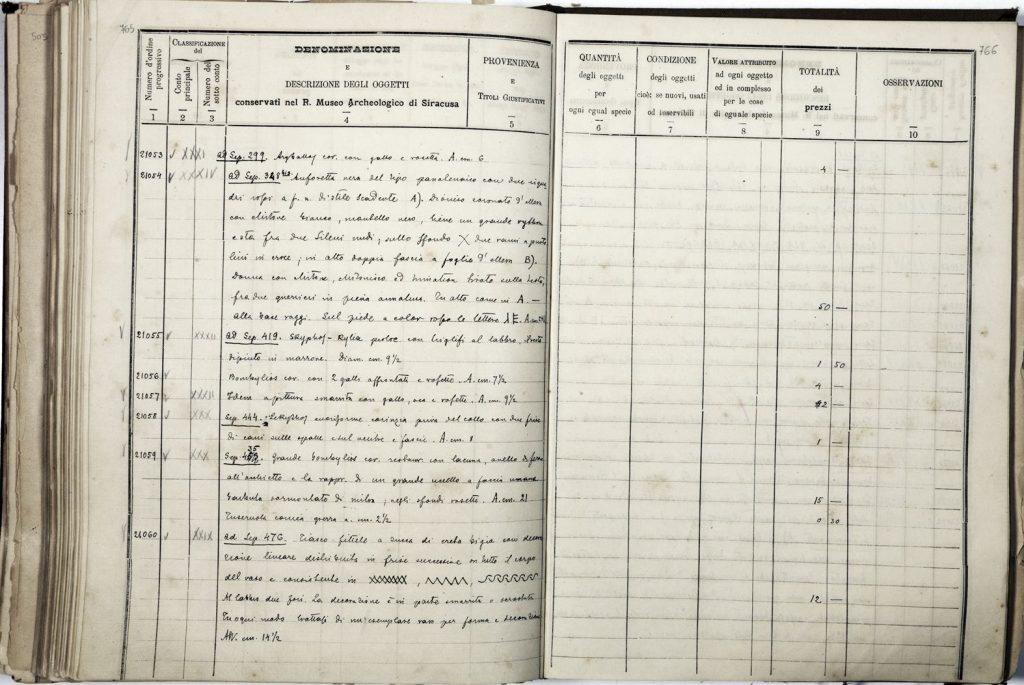 505
765
766
Numero d'ordine progressivo
CLASSIFICAZIONE del
Conto principale
Numero del sotto conto
DENOMINAZIONE
E
DESCRIZIONE DEGLI OGGETTI
conservati nel R. Museo Archeologico di Siracusa
PROVENIENZA
E
TITOLI GIUSTIFICATIVI
QUANTITÀ
degli oggetti
per
ogni egual specie
CONDIZIONE
degli oggetti
cioè: se nuovi, usati
od inservibili
VALORE ATTRIBUITO
ad ogni oggetto
od in complesso
per le cose
di eguale specie
TOTALITÀ
dei
prezzi
OSSERVAZIONI
1 2 3 4 5 6 7 8 9 10
21053 XXXI ad Sep. 299. Aryballos cor. con gallo e rosetta. A. cm. 6 4 —
21054 XXXIV ad Sep. 348 bis Anforetta nera del tipo panatenaico con due
a f. n. di stile scadente A). Dioniso coronato d'
con chitone bianco, mantello nero, tiene un grande rython
e sta fra due Sileni nudi; sullo sfondo due rami a
in croce; in alto doppia fascia a foglia d' B).
Donna con chitone, ed himation sulla testa,
fra due guerrieri in piena armatura. In alto come in A. —
alla base raggi. Sul piede a color rosso le lettere 50 —
21055 XXXII ad Sep. 419. Skyphos-Kylix con triglifi al labbro,
dipinto in marrone. Diam. cm. 9 1/2 1 50
21056 Bombylios cor. con 2 galli affrontati e rosette. A. cm. 7 1/2 4 —
21057 XXXII Idem a pittura smarrita con gallo, oca e rosette. A. cm. 9 1/2 2 —
21058 XXX Sep. 444. Lekythos cuoriforme corinzia priva del collo con due
di cani sulle spalle e sul ventre e fascie. A. cm. 8 1 —
21059 XXX Sep. 435. Grande bombylios cor. restaur. con lacuna, anello di
all'orichetto e la rappr. di un grande uccello a faccia umana
barbuta sormontato di; negli sfondi rosette. A. cm. 21 15 —
cm. 2 1/2 0 30
21060 XXIX ad Sep. 476. Fiasco fittile a di creta bigia con
lineare distribuita in frise successive su tutto il corpo
del vaso e consistente in
Al due fori. La decorazione è in parte smarrita o 12 —
In ogni modo trattasi di un'esemplare raro per forma e
Alt. cm. 14 1/2